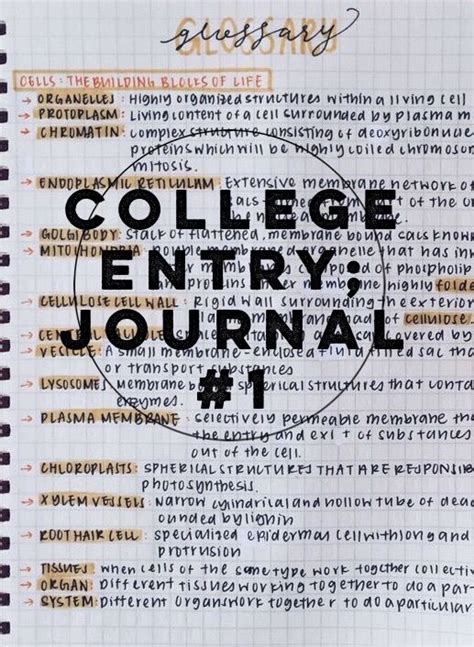 GLOSSARY
glossary
CELLS: THE BUILDING BLOCKS OF LIFE
→ ORGANELLES: Highly organized structures within a living cell
→ PROTOPLASM: Living content of a cell surrounded by plasma m
→ CHROMATIN: complex structure consisting of deoxyribonucle
proteins which will be highly coiled chromoso
mitosis.
→ ENDOPLASMIC RETICULUM: Extensive membrane network of
COLLEGE
→ GOLGI BODY: stack of flattened, membrane bound sacs know
→ MITOCHONDRIA: double membraned organelle that has in
ENTRY;
→ CELLULOSE CELL WALL: Rigid wall surrounding the exterior
of cellulose.
JOURNAL
→ VESICLE: A small membrane-enclosed fluid filled sac tha
or transport substances
#1
→ LYSOSOMES: Membrane bound spherical structures that conta
enzymes.
→ PLASMA MEMBRANE: selectively permeable membrane tha
the entry and exit of substances
out of the cell.
→ CHLOROPLASTS: SPHERICAL STRUCTURES THAT ARE RESPONSIB
photosynthesis.
→ XYLEM VESSELS: Narrow cylindrical and hollow tube of dea
ounded by lignin
→ ROOT HAIR CELL: specialized epidermal cell with long and
protrusion
→ TISSUES: when cells of the same type work together collectiv
→ ORGAN: Different tissues working together to do a par
→ SYSTEM: Different organs work together to do a particular